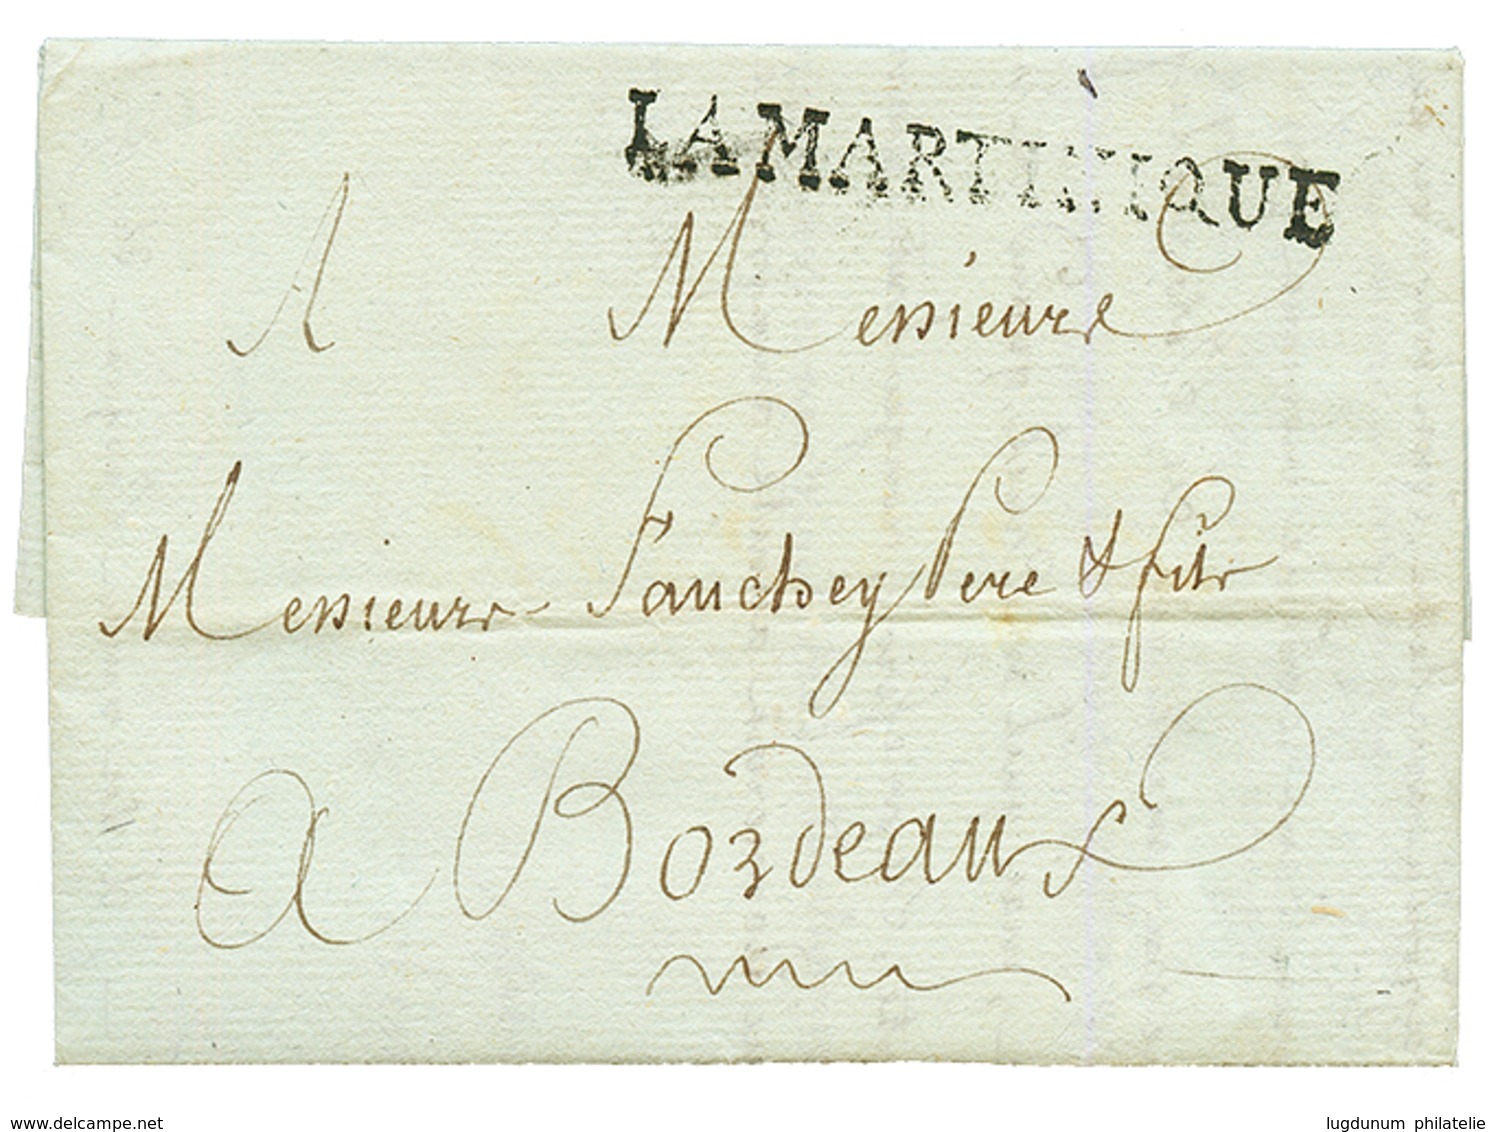 LA MARTINIQUE
A Messieurs
Messieurs Fauchey Pere & fils
a Bordeaux
www.delcampe.net
lugdunum philatelie